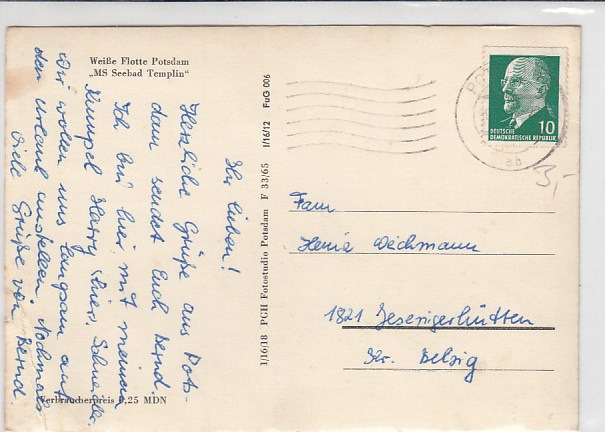 Weiße Flotte Potsdam
„MS Seebad Templin“
Ihr lieben!
Herzliche Grüße aus Pots-
dam sendet Euch Bernd.
Ich bin hier mit meinem
Kumpel Harry hier.
Wir wollen uns langsam auf
den Urlaub einstellen. Nochmals
Viele Grüße von Bernd.
Verbraucherpreis 0,25 MDN
1/16/18 PGH Fotostudio Potsdam F 33/65 1/16/12 FuG 006
DEUTSCHE
DEMOKRATISCHE REPUBLIK
10
ab
3,-
Fam
Wichmann
1821 Jeserigerhütten
Kr. Belzig